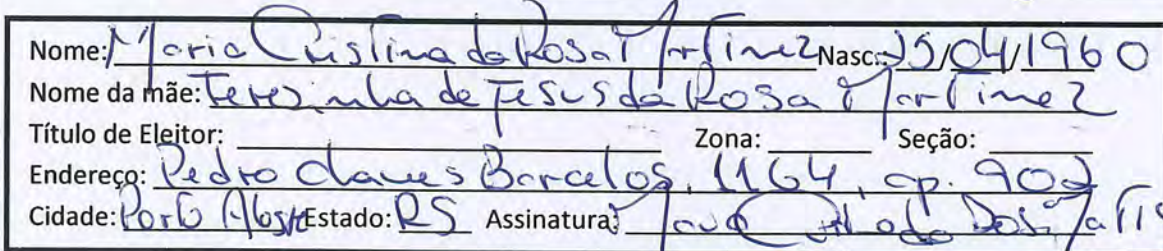 Nome: Maria Cristina da Rosa Martinez Nasc.: 25/04/1960
Nome da mãe: Terezinha de Jesus da Rosa Martinez
Título de Eleitor: Zona: Seção:
Endereço: Pedro Chaves Barcelos, 1164, ap. 902
Cidade: Porto Alegre Estado: RS Assinatura: